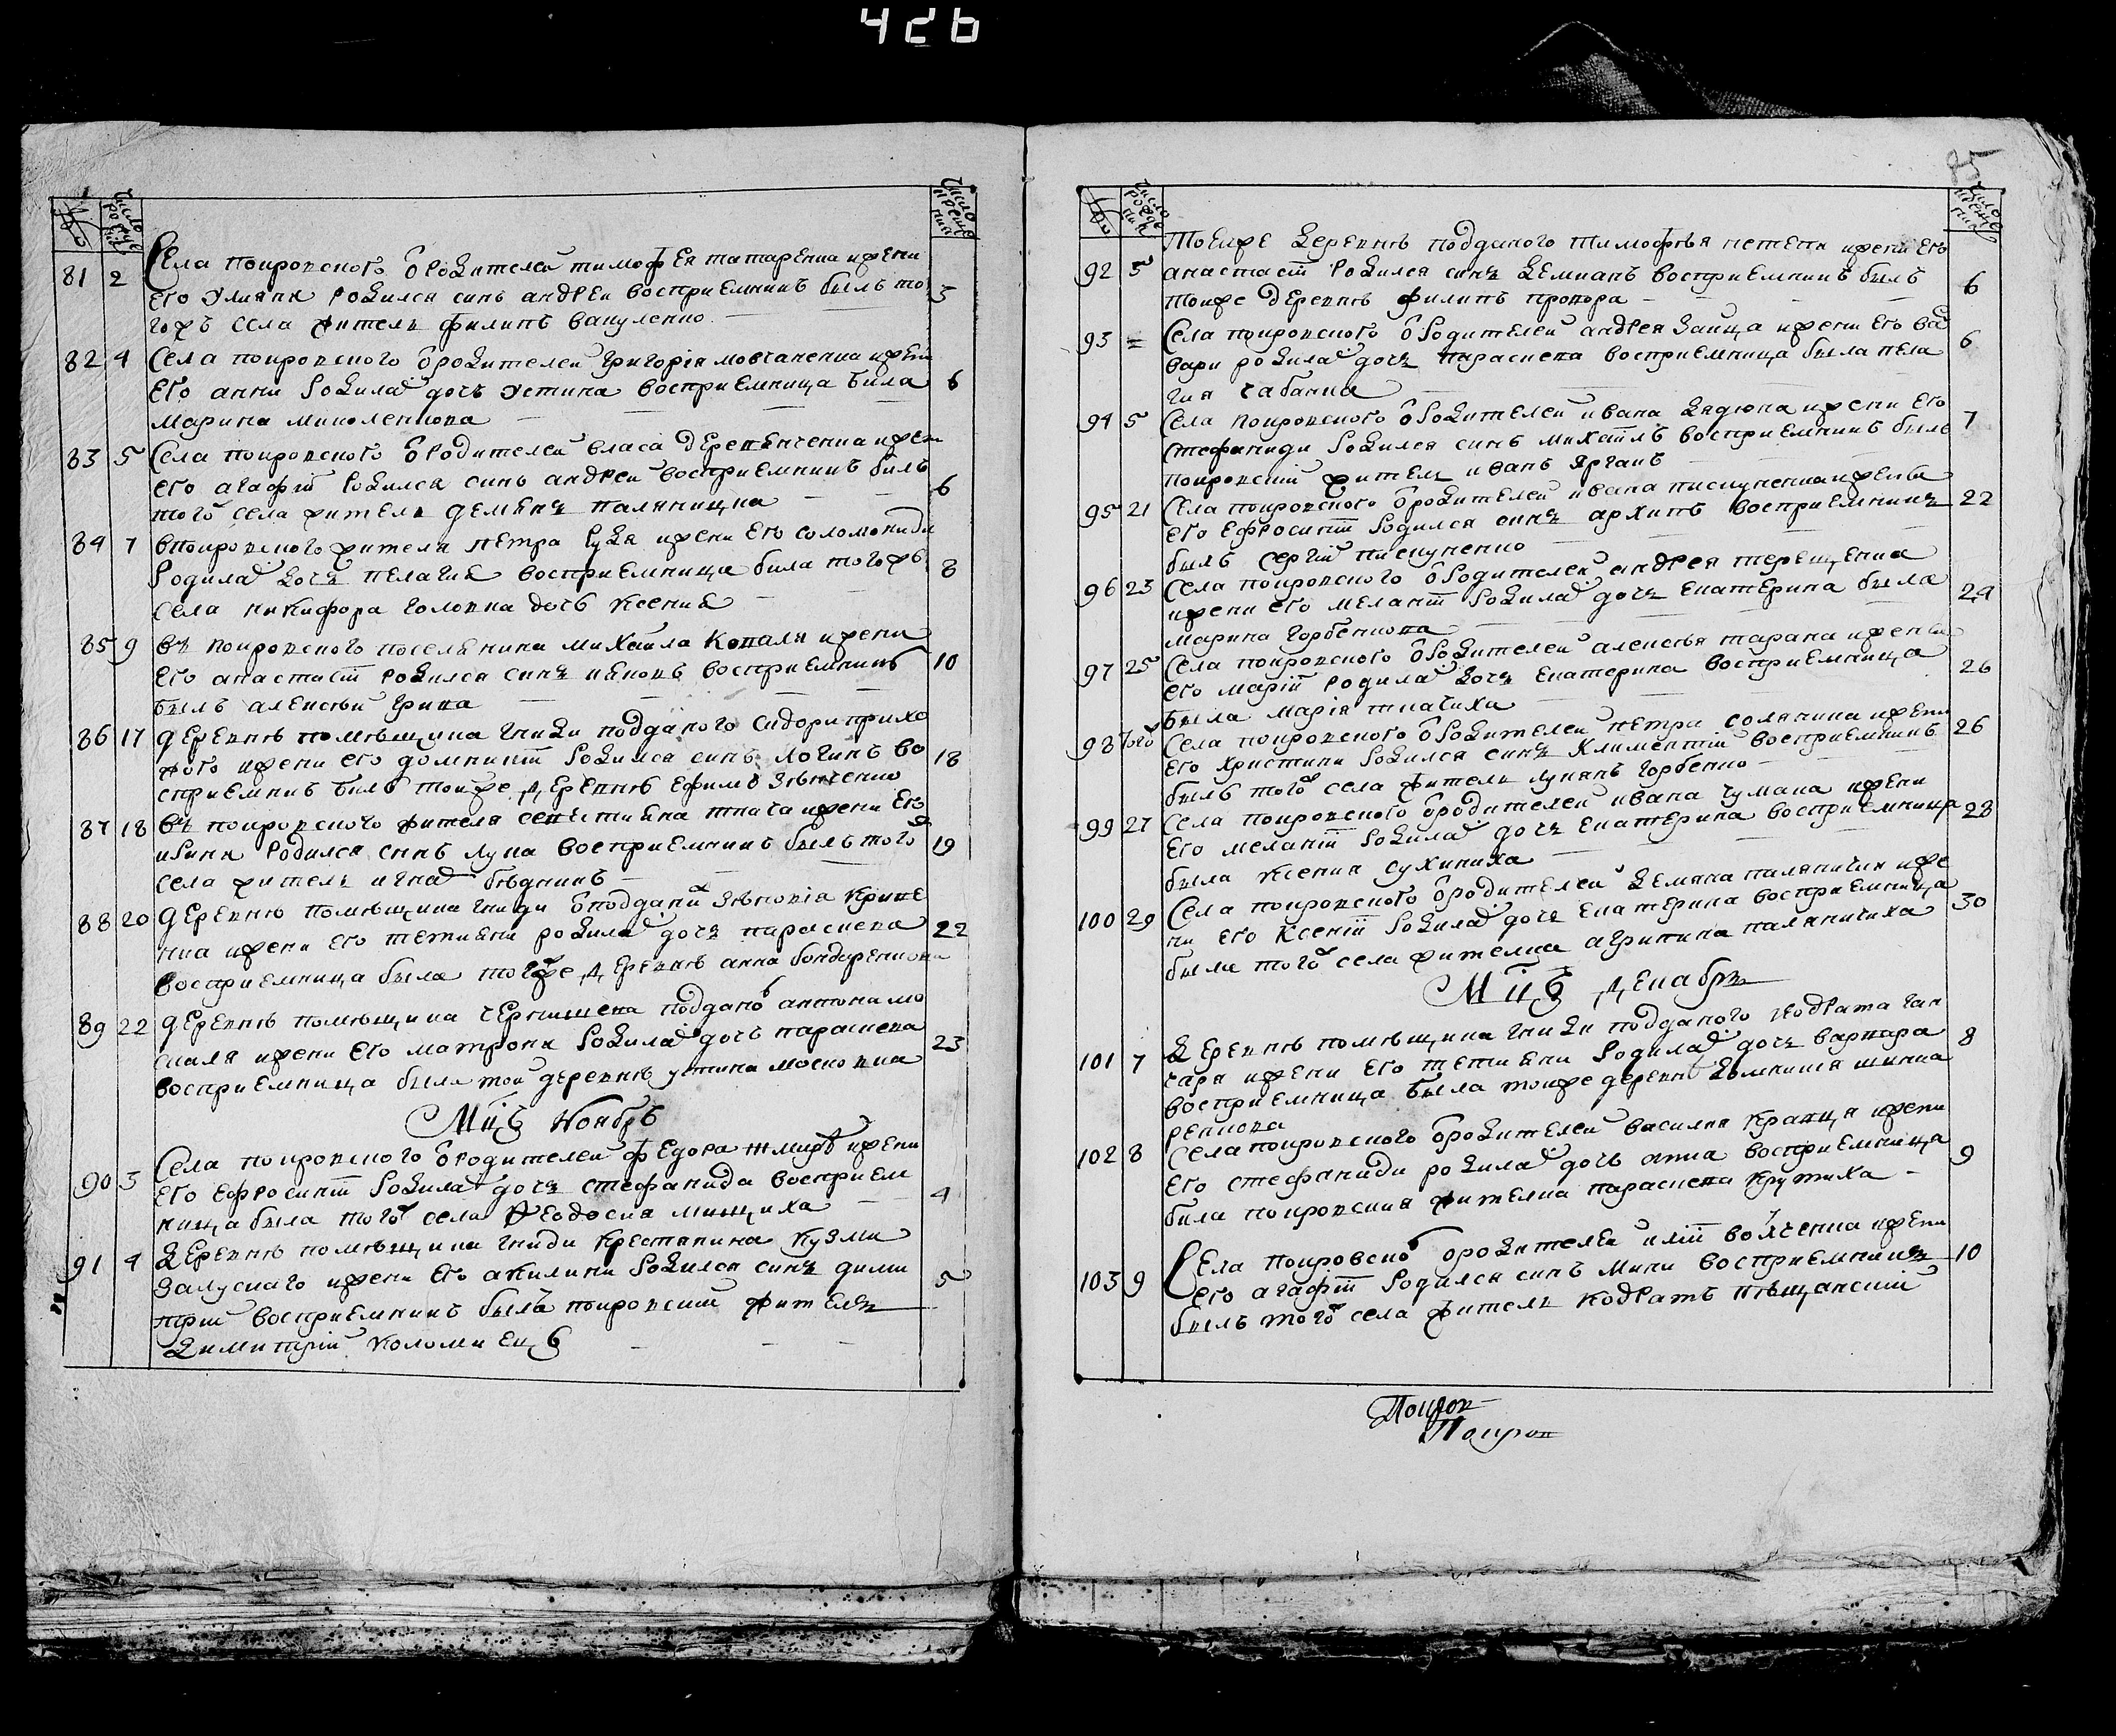 426
85
число рожде нїя
число креще нїя
81 2 Села покровского ѿ родителей тимофея татаренка и жени
его Улияни родился синъ андрей восприемникъ былъ то 3
гожъ села житель филипъ вакуленко
82 4 Села покровского ѿ родителей григорїя мовчаненка и жени
его анни родилас дочъ Устина восприемница била 6
марина миколенкова
83 5 Села покровского ѿ родителей власа деревянченка и жени
его агафїи родился синъ андрей восприемникъ билъ 6
того села житель демянъ паляницка
84 7 в покровского жителя петра гузя и жени его соломониди
родилас дочъ пелагия восприемница била тогожъ 8
села никифора головка дочъ ксения
85 9 въ покровского поселянина михайла коваля и жени
его анастасїи родился синъ ияковъ восприемникъ 10
былъ алексѣй грина
86 17 деревнѣ помѣщика гниди подданого сидора прихо
дкого и жени его домникїи родился синъ логинъ во 18
сприемникъ билъ тоижже деревнѣ ефимъ зѣнченко
87 18 въ покровского жителя севастияна ткача и жени его
ирини родился синъ лука восприемникъ былъ того 19
села житель игнат бѣдникъ
88 20 деревнѣ помѣщика гниди ѿ подданих зѣновїя криве
нка и жени его тетияни родилас дочъ параскева 22
восприемница была тоижже деревнѣ анна бондаренкова
89 22 деревнѣ помѣщика чернишева поддано антона мо
скаля и жени его матрони родилас дочъ параскева 23
восприемница была той деревнѣ устина московка
Мцъ Ноябръ
90 3 Села покровского ѿ родителей федора жмира и жени
его ефросинїи родилас дочъ стефанида восприем
ница была того села Феодосия мищиха 4
91 4 деревнѣ помѣщика гниди крестянина кузми
залуского и жени его акилини родился синъ дими 5
трїй восприемникъ былъ покровскїй житель
димитрїй коломиецъ
тоижже деревнѣ подданого тимофѣя петеки и жени его
92 5 анастасїи родился синъ демианъ восприемникъ былъ 6
тоижже деревнѣ филипъ прокора
93 = Села покровского ѿ родителей андрея зайца и жени его ва
вари родилас дочъ параскева восприемница была пела 6
гия чабанка
94 5 Села покровского ѿ родителей ивана дядюка и жени его
стефаниди родился синъ михаилъ восприемникъ былъ 7
покровскїй житель иванъ ярганъ
95 21 Села покровского ѿ родителей ивана пискуненка и жени
его ефросинїи родился синъ архипъ восприемникъ 22
былъ сергїй пискуненко
96 23 Села покровского ѿ родителей андрея терещенка
и жени его меланїи родилас дочъ екатерина была 24
марина горбенкова
97 25 Села покровского ѿ родителей алексѣя тарана и жени
его марїи родилас дочъ екатерина восприемница 26
была марїя ткачиха
98 того Села покровского ѿ родителей петра соляника и жени
его христини родился синъ климентїй восприемникъ 26
былъ того села житель лукянъ горбенко
99 27 Села покровского ѿ родителей ивана чумака и жени
его меланїи родилас дочъ екатерина восприемница 28
была ксения сухиниха
100 29 Села покровского ѿ родителей демяна паляничкя и же
ни его ксенїи родилас дочъ екатерина восприемница 30
была того села жителка агрипина паляничиха
Мцъ декабръ
101 7 деревнѣ помѣщика гниди подданого кодрата ган
чаря и жени его тетияни родилас дочъ варвара 8
восприемница была тоижже деревнѣ евмения шинка
ренкова
102 8 Села покровского ѿ родителей василия кравця и жени
его стефаниди родилас дочъ анна восприемница 9
била покровския жителка параскева крутиха
103 9 Села покровско ѿ родителей илїи волченка и жени
его агафїи родился синъ мина восприемникъ 10
былъ того села житель кодратъ пѣщанскїй
Покров
Покров